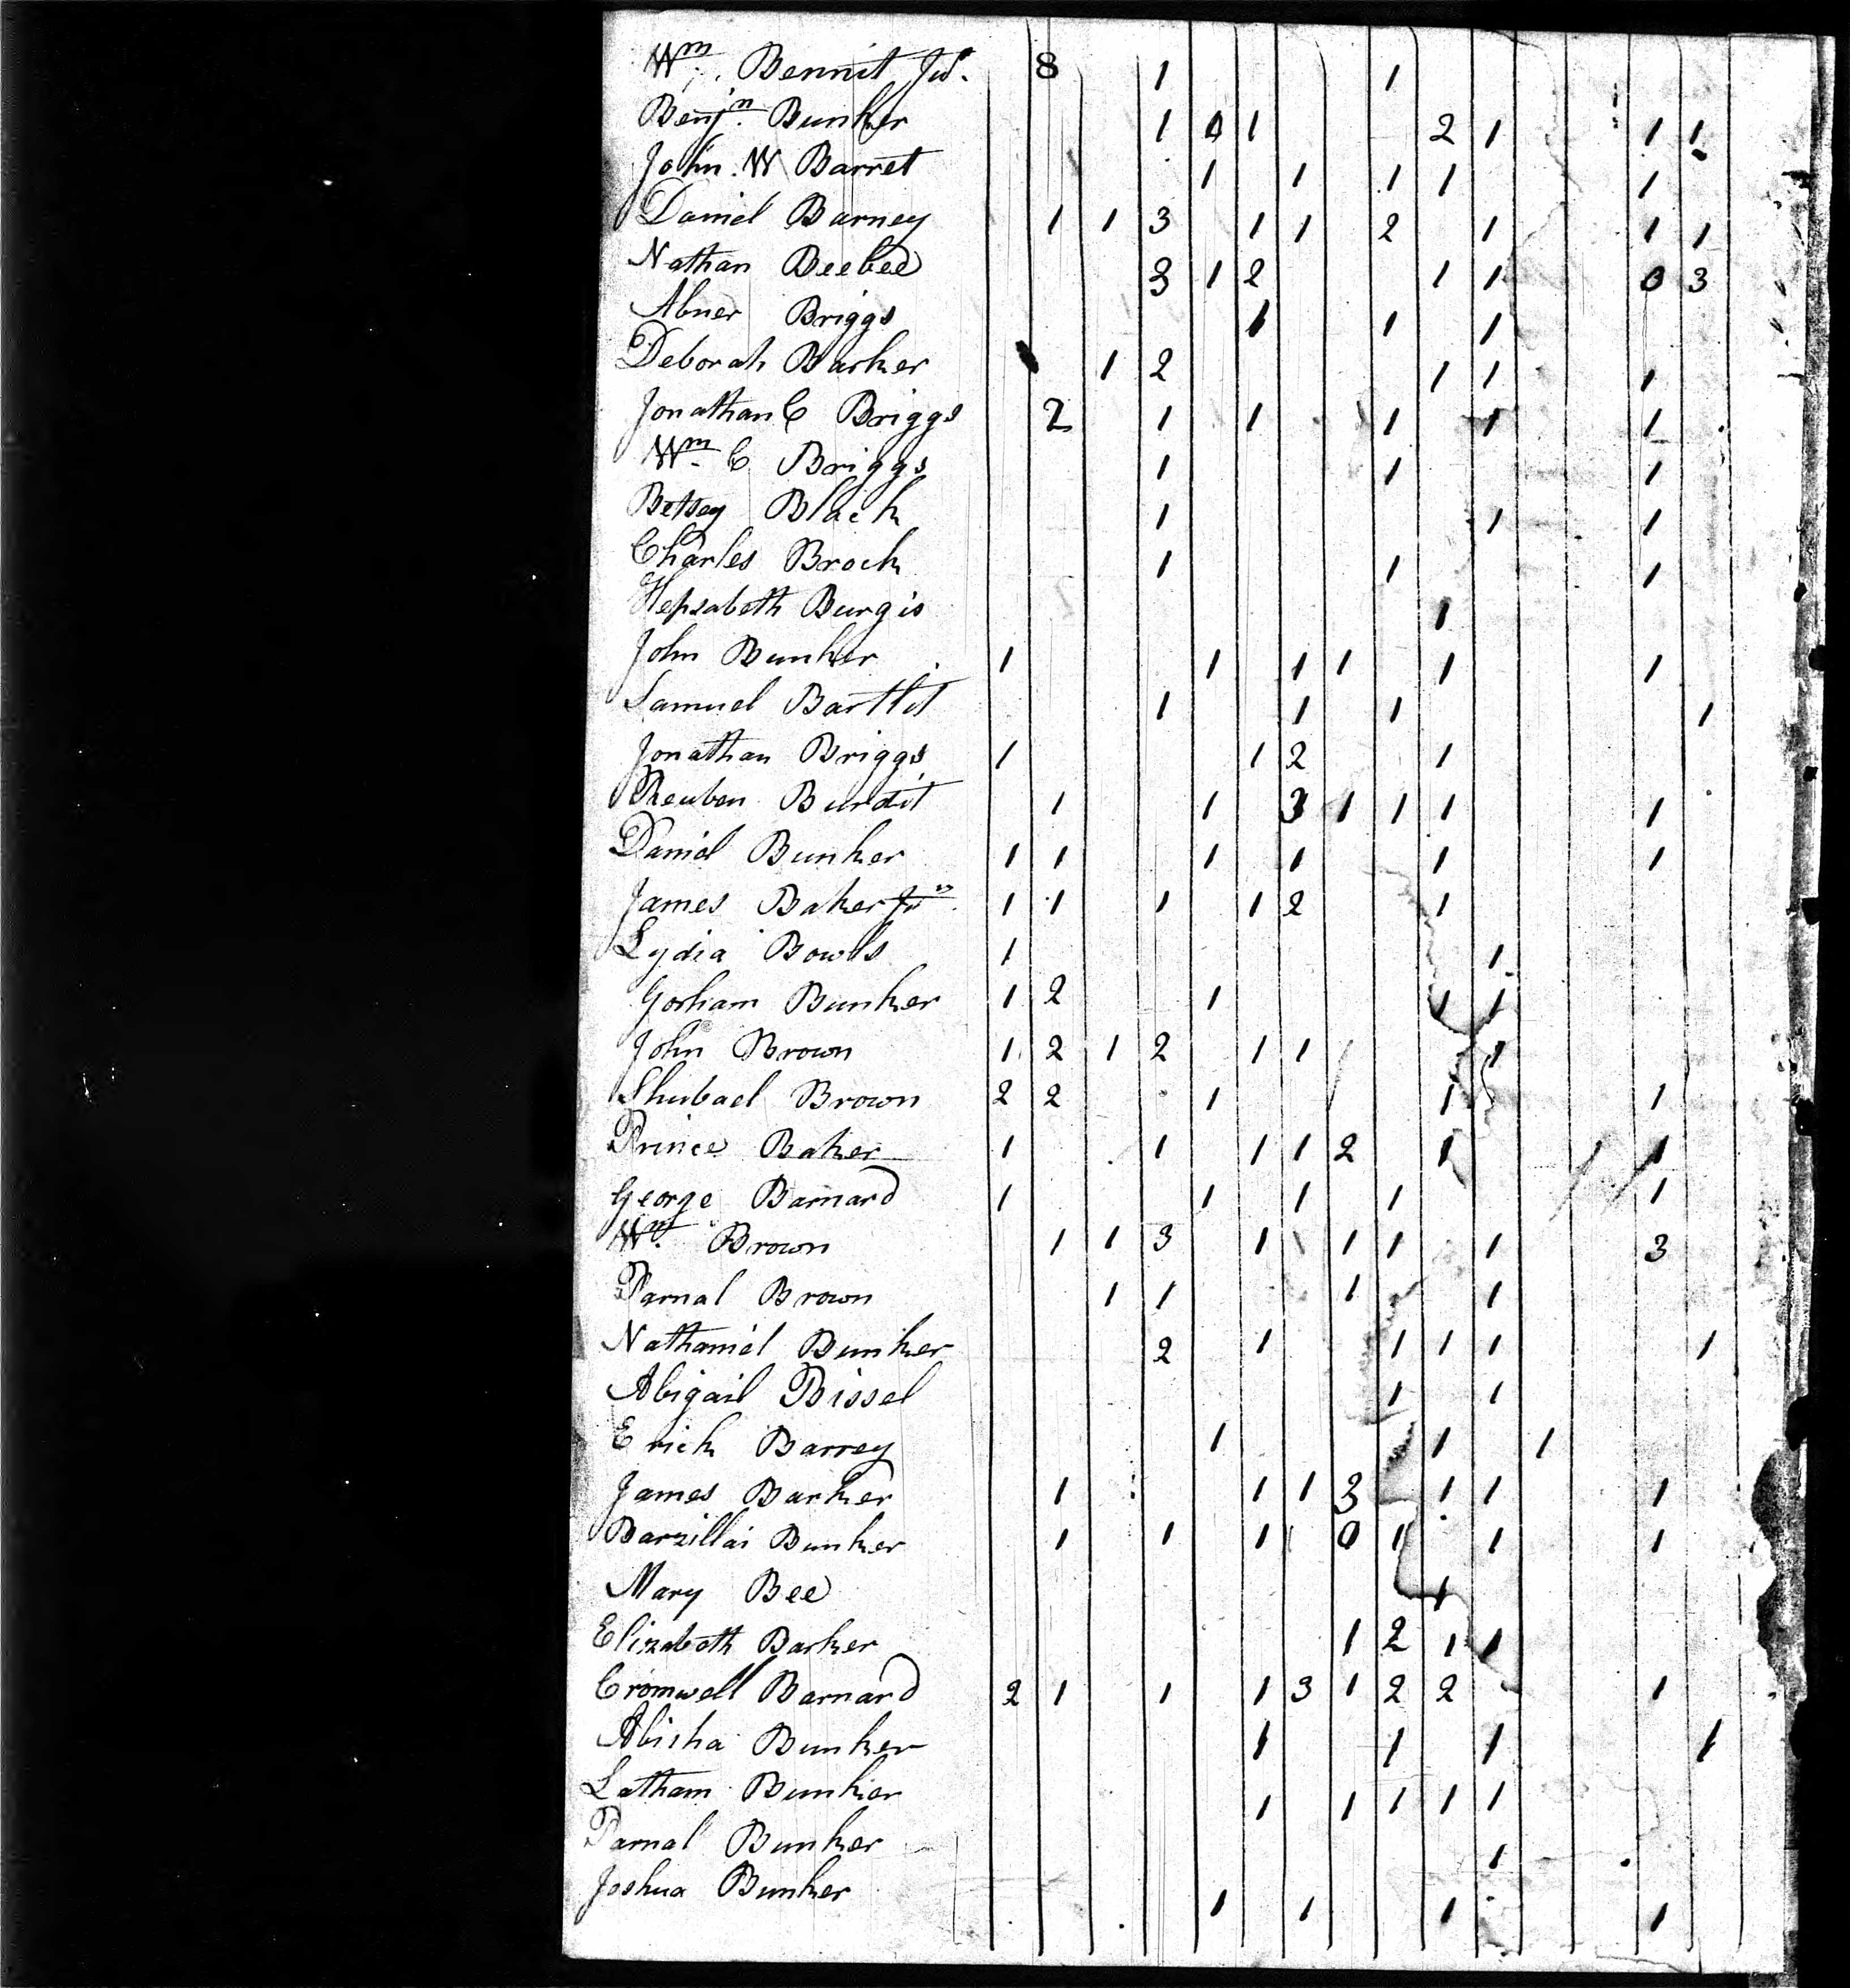 Wm. Bennit Jur. 8 1 1
Benjn. Bunker 1 0 1 2 1 1 1
John. W Barret 1 1 1 1 1
Daniel Barney 1 1 3 1 1 2 1 1 1
Nathan Beebee 3 1 2 1 1 3
Abner Briggs 1 1 1
Deborah Barker 1 2 1 1 1
Jonathan C Briggs 2 1 1 1 1 1
Wm. C Briggs 1 1 1
Betsey Black 1 1 1
Charles Brock 1 1 1
Hepsabeth Burgis 1
John Bunker 1 1 1 1 1 1
Samuel Bartlet 1 1 1 1
Jonathan Briggs 1 1 2 1
Reuben Burdit 1 1 3 1 1 1 1
Daniel Bunker 1 1 1 1 1 1
James Baker Jur 1 1 1 1 2 1
Lydia Bowls 1 1
Gorham Bunker 1 2 1 1 1
John Brown 1 2 1 2 1 1 1
Shubael Brown 2 2 1 1 1
Prince Baker 1 1 1 1 2 1 1
George Barnard 1 1 1 1 1
Wm. Brown 1 1 3 1 1 1 1 3
Parnal Brown 1 1 1 1
Nathaniel Bunker 2 1 1 1 1 1
Abigail Bissel 1 1
Erick Barrey 1 1 1
James Barker 1 1 1 3 1 1 1
Barzillai Bunker 1 1 1 0 1 1 1
Mary Bee 1
Elizabeth Barker 1 2 1 1
Cromwell Barnard 2 1 1 1 3 1 2 2 1
Abisha Bunker 1 1 1 1
Latham Bunker 1 1 1 1 1
Parnal Bunker 1
Joshua Bunker 1 1 1 1